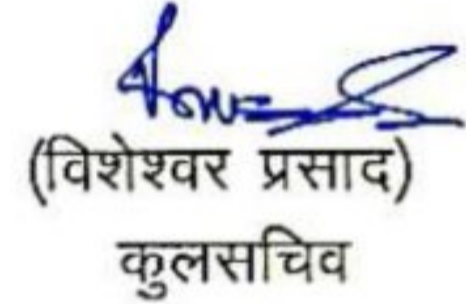 (विशेश्वर प्रसाद)
कुलसचिव